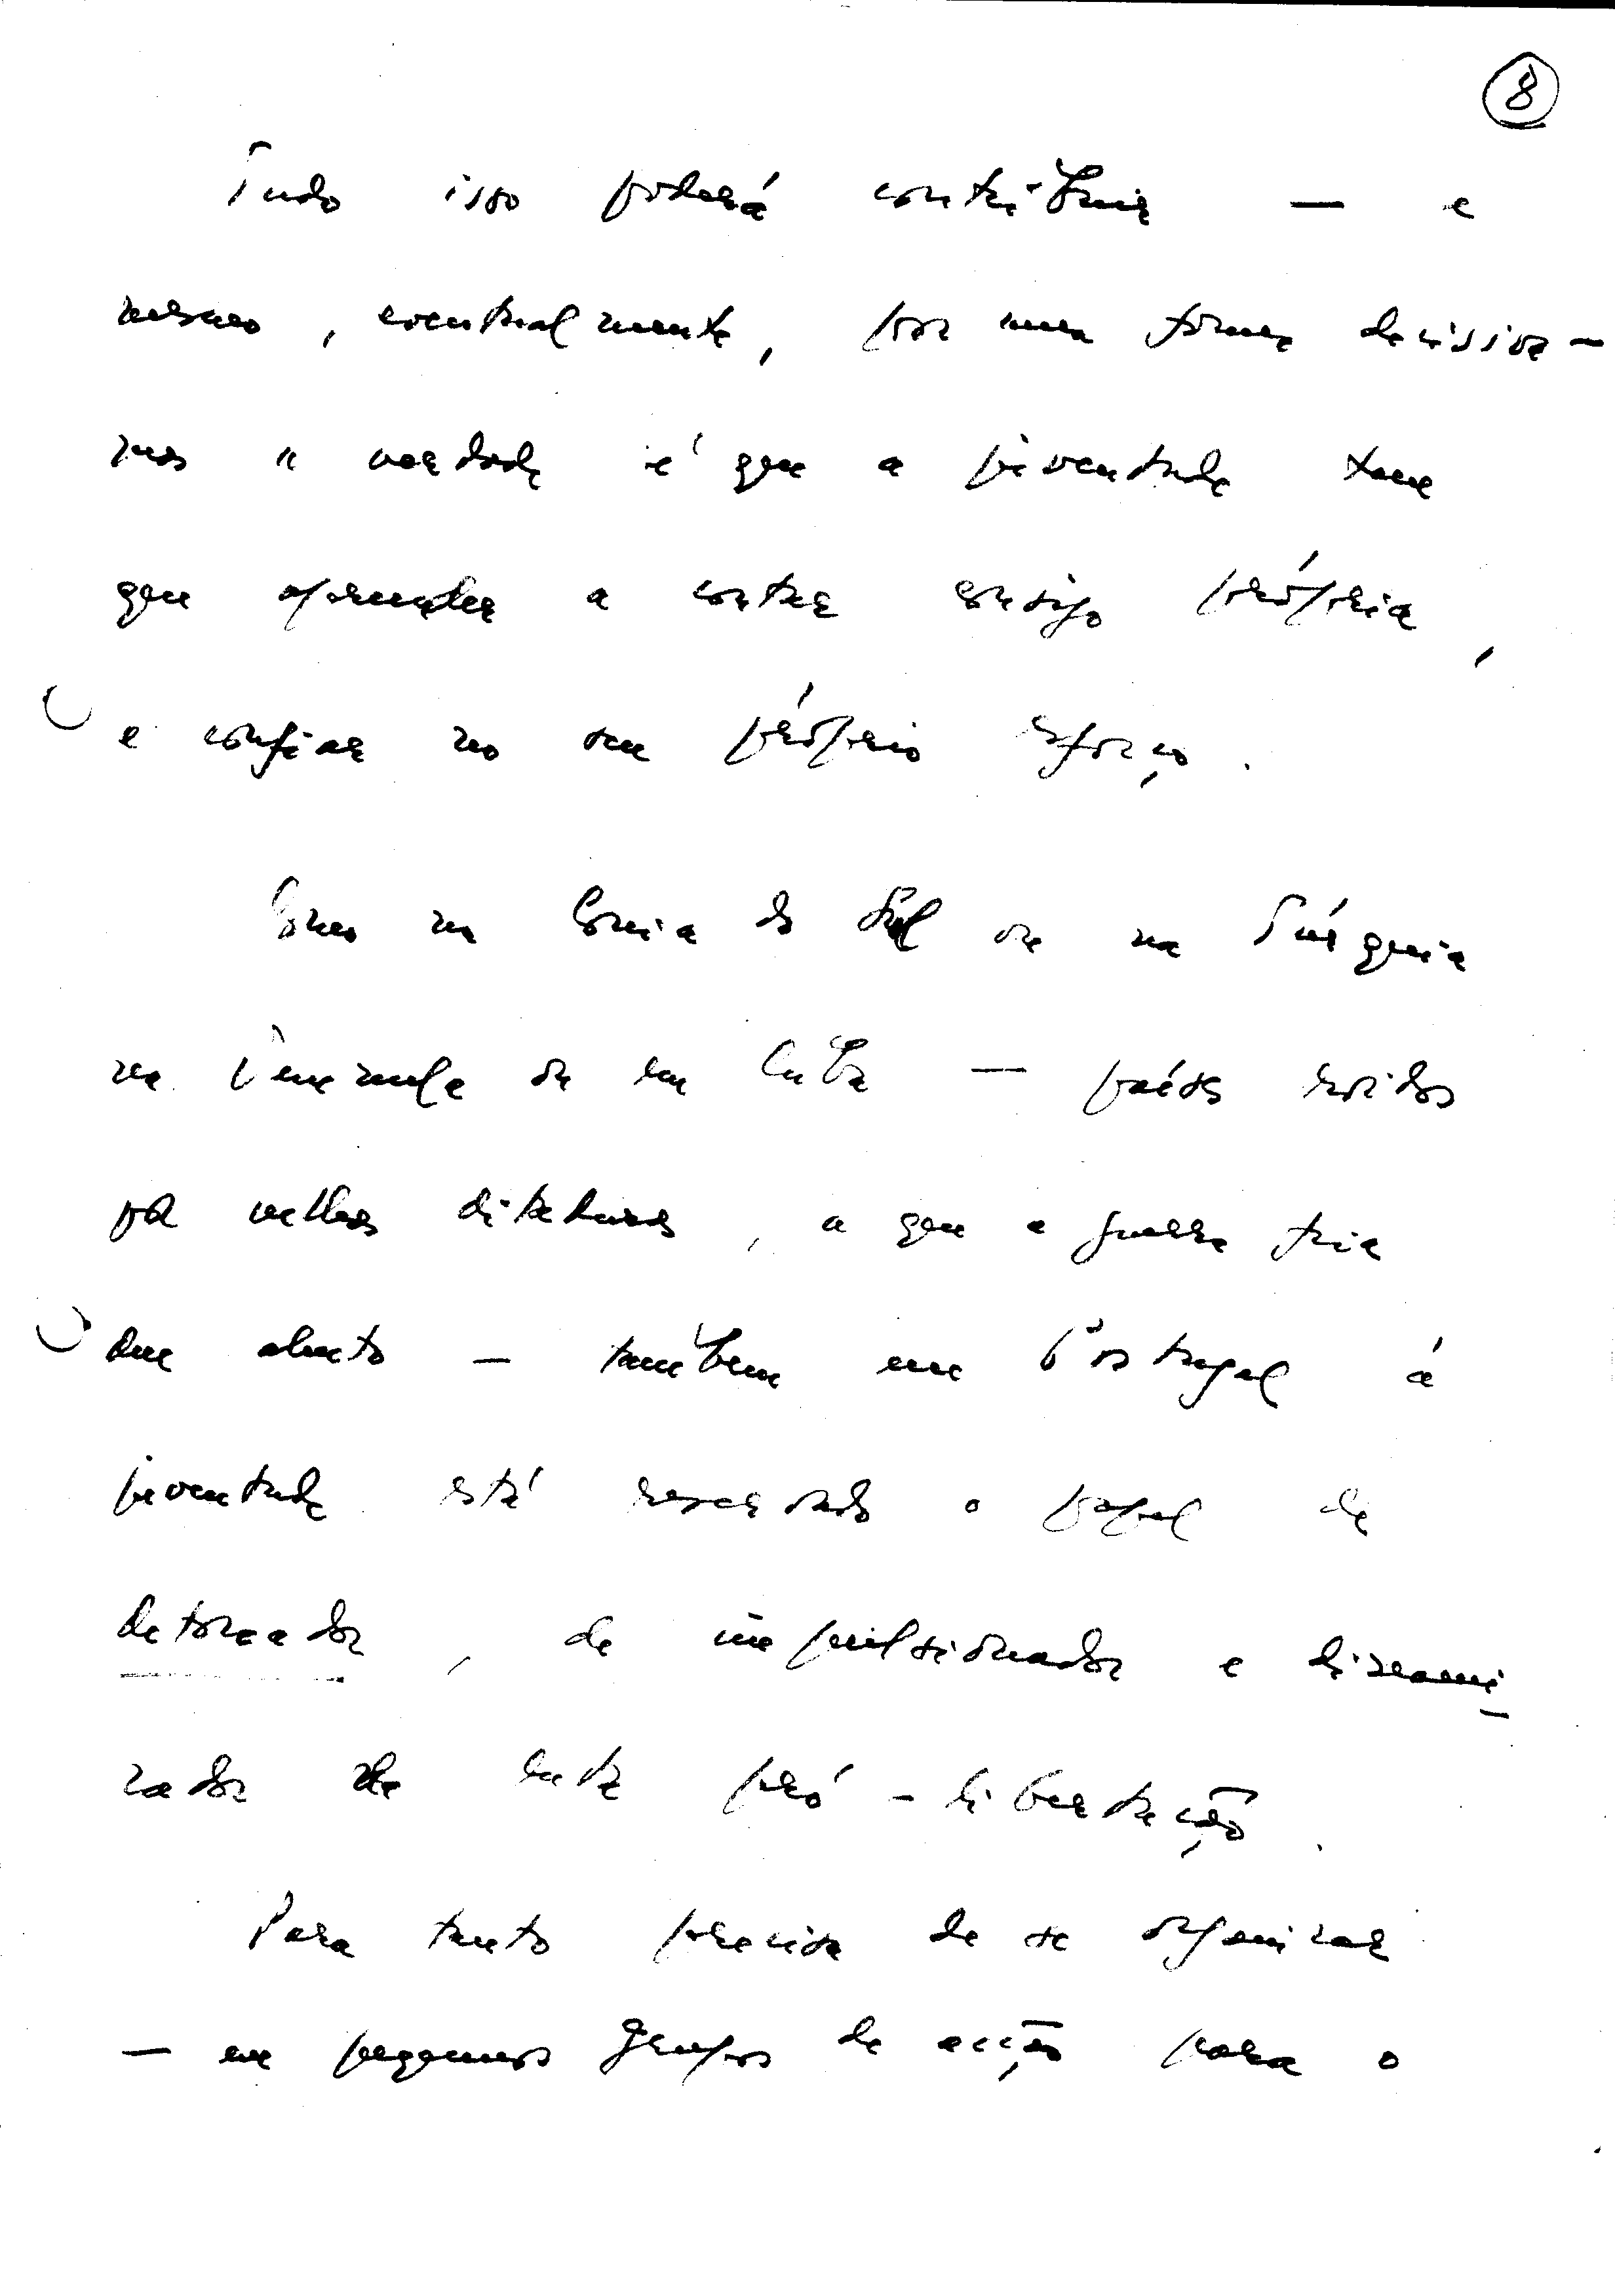 8
Tudo isso poderá contribuir — e
mesmo, eventualmente, por uma forma decisiva —
mas a verdade é que a juventude tem
que aprender a contar consigo própria,
e confiar no seu próprio esforço.
Como na Coreia do Sul ou na Túrquia
na Venezuela ou em Cuba — países
por velhas ditaduras, a que a guerra fria
deu alento — também em Portugal á
juventude está reservado o papel de
detonador, de impulsionador e dinami-
zador da luta pró-libertação.
Para tanto precisa de se organizar
— em pequenos grupos de acção para o